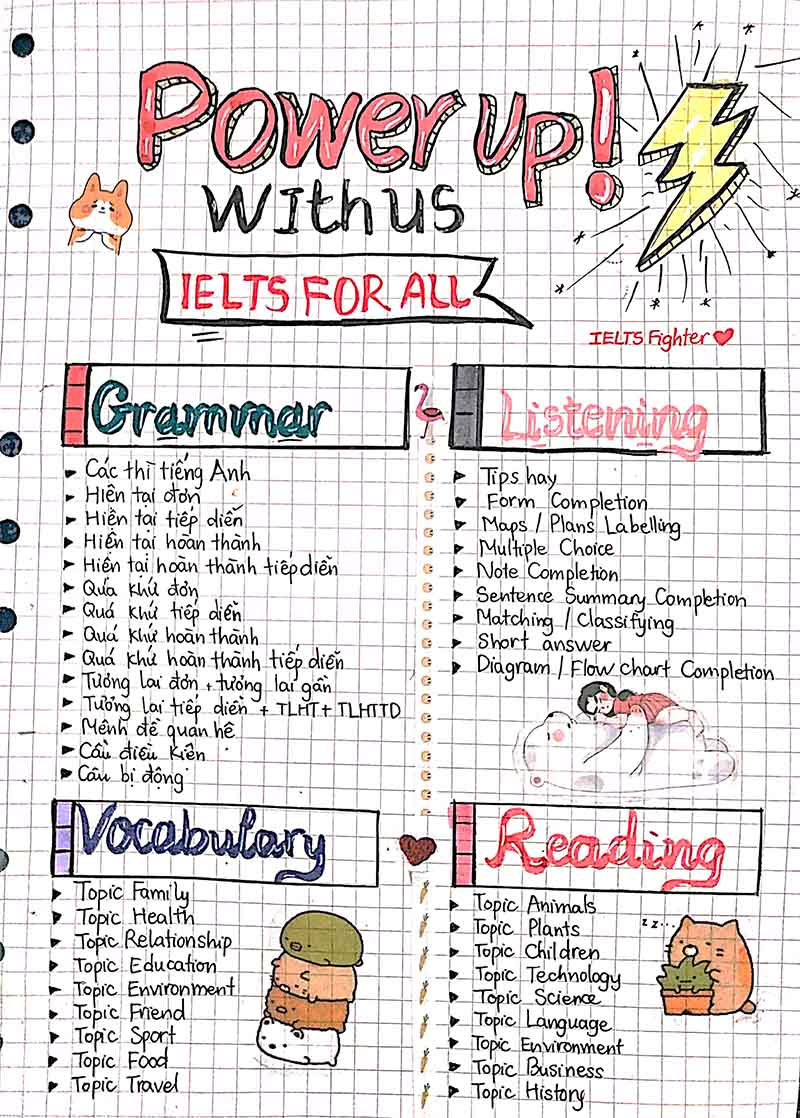 Power up!
With us
IELTS FOR ALL
IELTS Fighter
Grammar
Các thì tiếng Anh
Hiện tại đơn
Hiện tại tiếp diễn
Hiện tại hoàn thành
Hiện tại hoàn thành tiếp diễn
Quá khứ đơn
Quá khứ tiếp diễn
Quá khứ hoàn thành
Quá khứ hoàn thành tiếp diễn
Tương lai đơn + tương lai gần
Tương lai tiếp diễn + TLHT + TLHTTD
Mệnh đề quan hệ
Câu điều kiện
Câu bị động
Listening
Tips hay
Form Completion
Maps / Plans Labelling
Multiple Choice
Note Completion
Sentence Summary Completion
Matching / Classifying
Short answer
Diagram / Flow chart Completion
Vocabulary
Topic Family
Topic Health
Topic Relationship
Topic Education
Topic Environment
Topic Friend
Topic Sport
Topic Food
Topic Travel
Reading
Topic Animals
Topic Plants
Topic Children
Topic Technology
Topic Science
Topic Language
Topic Environment
Topic Business
Topic History
zz...